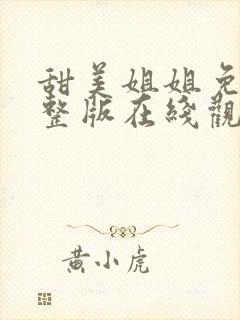 甜美姐姐免
整版在綫觀
黄小虎